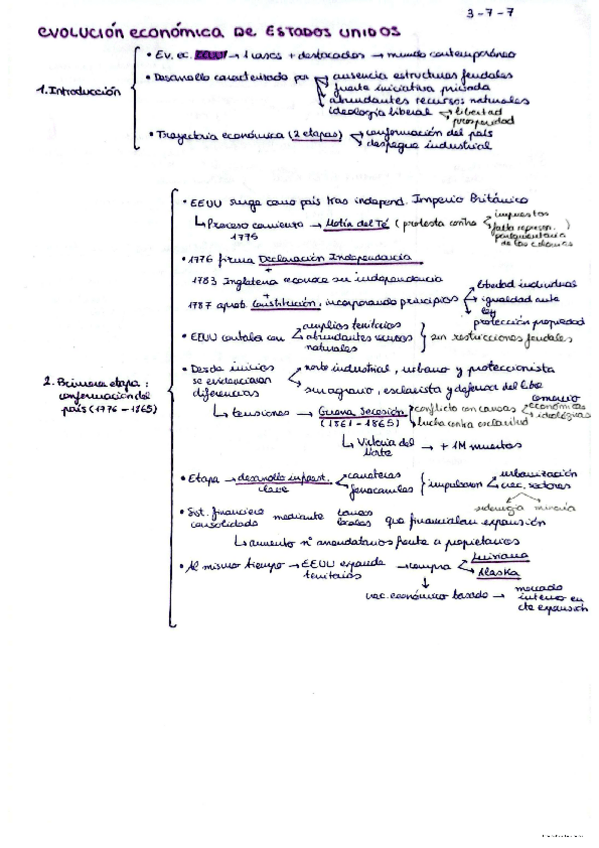 3-7-7
EVOLUCIÓN ECONÓMICA DE ESTADOS UNIDOS
1. Introducción
• Ev. ec. EEUU → 1 casos + destacados → mundo contemporáneo
• Desarrollo caracterizado por → ausencia estructuras feudales
fuerte iniciativa privada
abundantes recursos naturales
ideología liberal → libertad
prosperidad
• Trayectoria económica (2 etapas) → conformación del país
despegue industrial
2. Primera etapa:
conformación del
país (1776-1865)
• EEUU surge como país tras independ. Imperio Británico
↳ Proceso comienza → Motín del Té (protesta contra → impuestos
1775
falta represen.
parlamentaria
de las colonias
• 1776 firma Declaración Independencia
+
1783 Inglaterra reconoce su independencia
+
1787 aprob. Constitución, incorporando principios → libertad individual
igualdad ante
ley
protección propiedad
• EEUU contaba con → amplios territorios
abundantes recursos
naturales
} sin restricciones feudales
• Desde inicios
se evidenciaron
diferencias
→ norte industrial, urbano y proteccionista
→ sur agrario, esclavista y defensor del libre
comercio
↳ tensiones → Guerra Secesión
(1861-1865)
conflicto con causas → económicas
ideológicas
lucha contra esclavitud
↳ Victoria del
Norte
→ +1M muertos
• Etapa → desarrollo infraest.
clave
→ carreteras
ferrocarriles
} impulsaron → urbanización
crec. sectores
siderurgia minería
• Sist. financiero
consolidado
mediante
bancos
locales
que financiaban expansión
↳ aumento nº arrendatarios frente a propietarios
• Al mismo tiempo → EEUU expande
territorios
→ compra → Luisiana
Alaska
↓
crec. económico basado → mercado
interno en
cte expansión